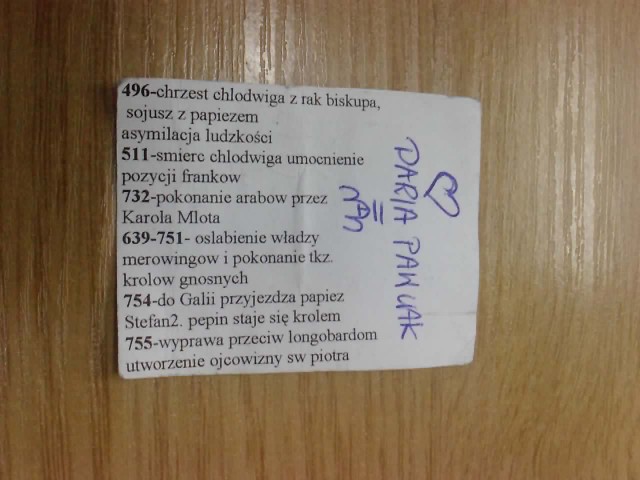 496-chrzest chlodwiga z rak biskupa,
sojusz z papiezem
asymilacja ludzkości
511-smierc chlodwiga umocnienie
pozycji frankow
732-pokonanie arabow przez
Karoła Mlota
639-751- oslabienie władzy
merowingow i pokonanie tkz.
krolow gnosnych
754-do Galii przyjezdza papiez
Stefan2. pepin staje się krolem
755-wyprawa przeciw longobardom
utworzenie ojcowizny sw piotra
DARIA PAWLAK
=